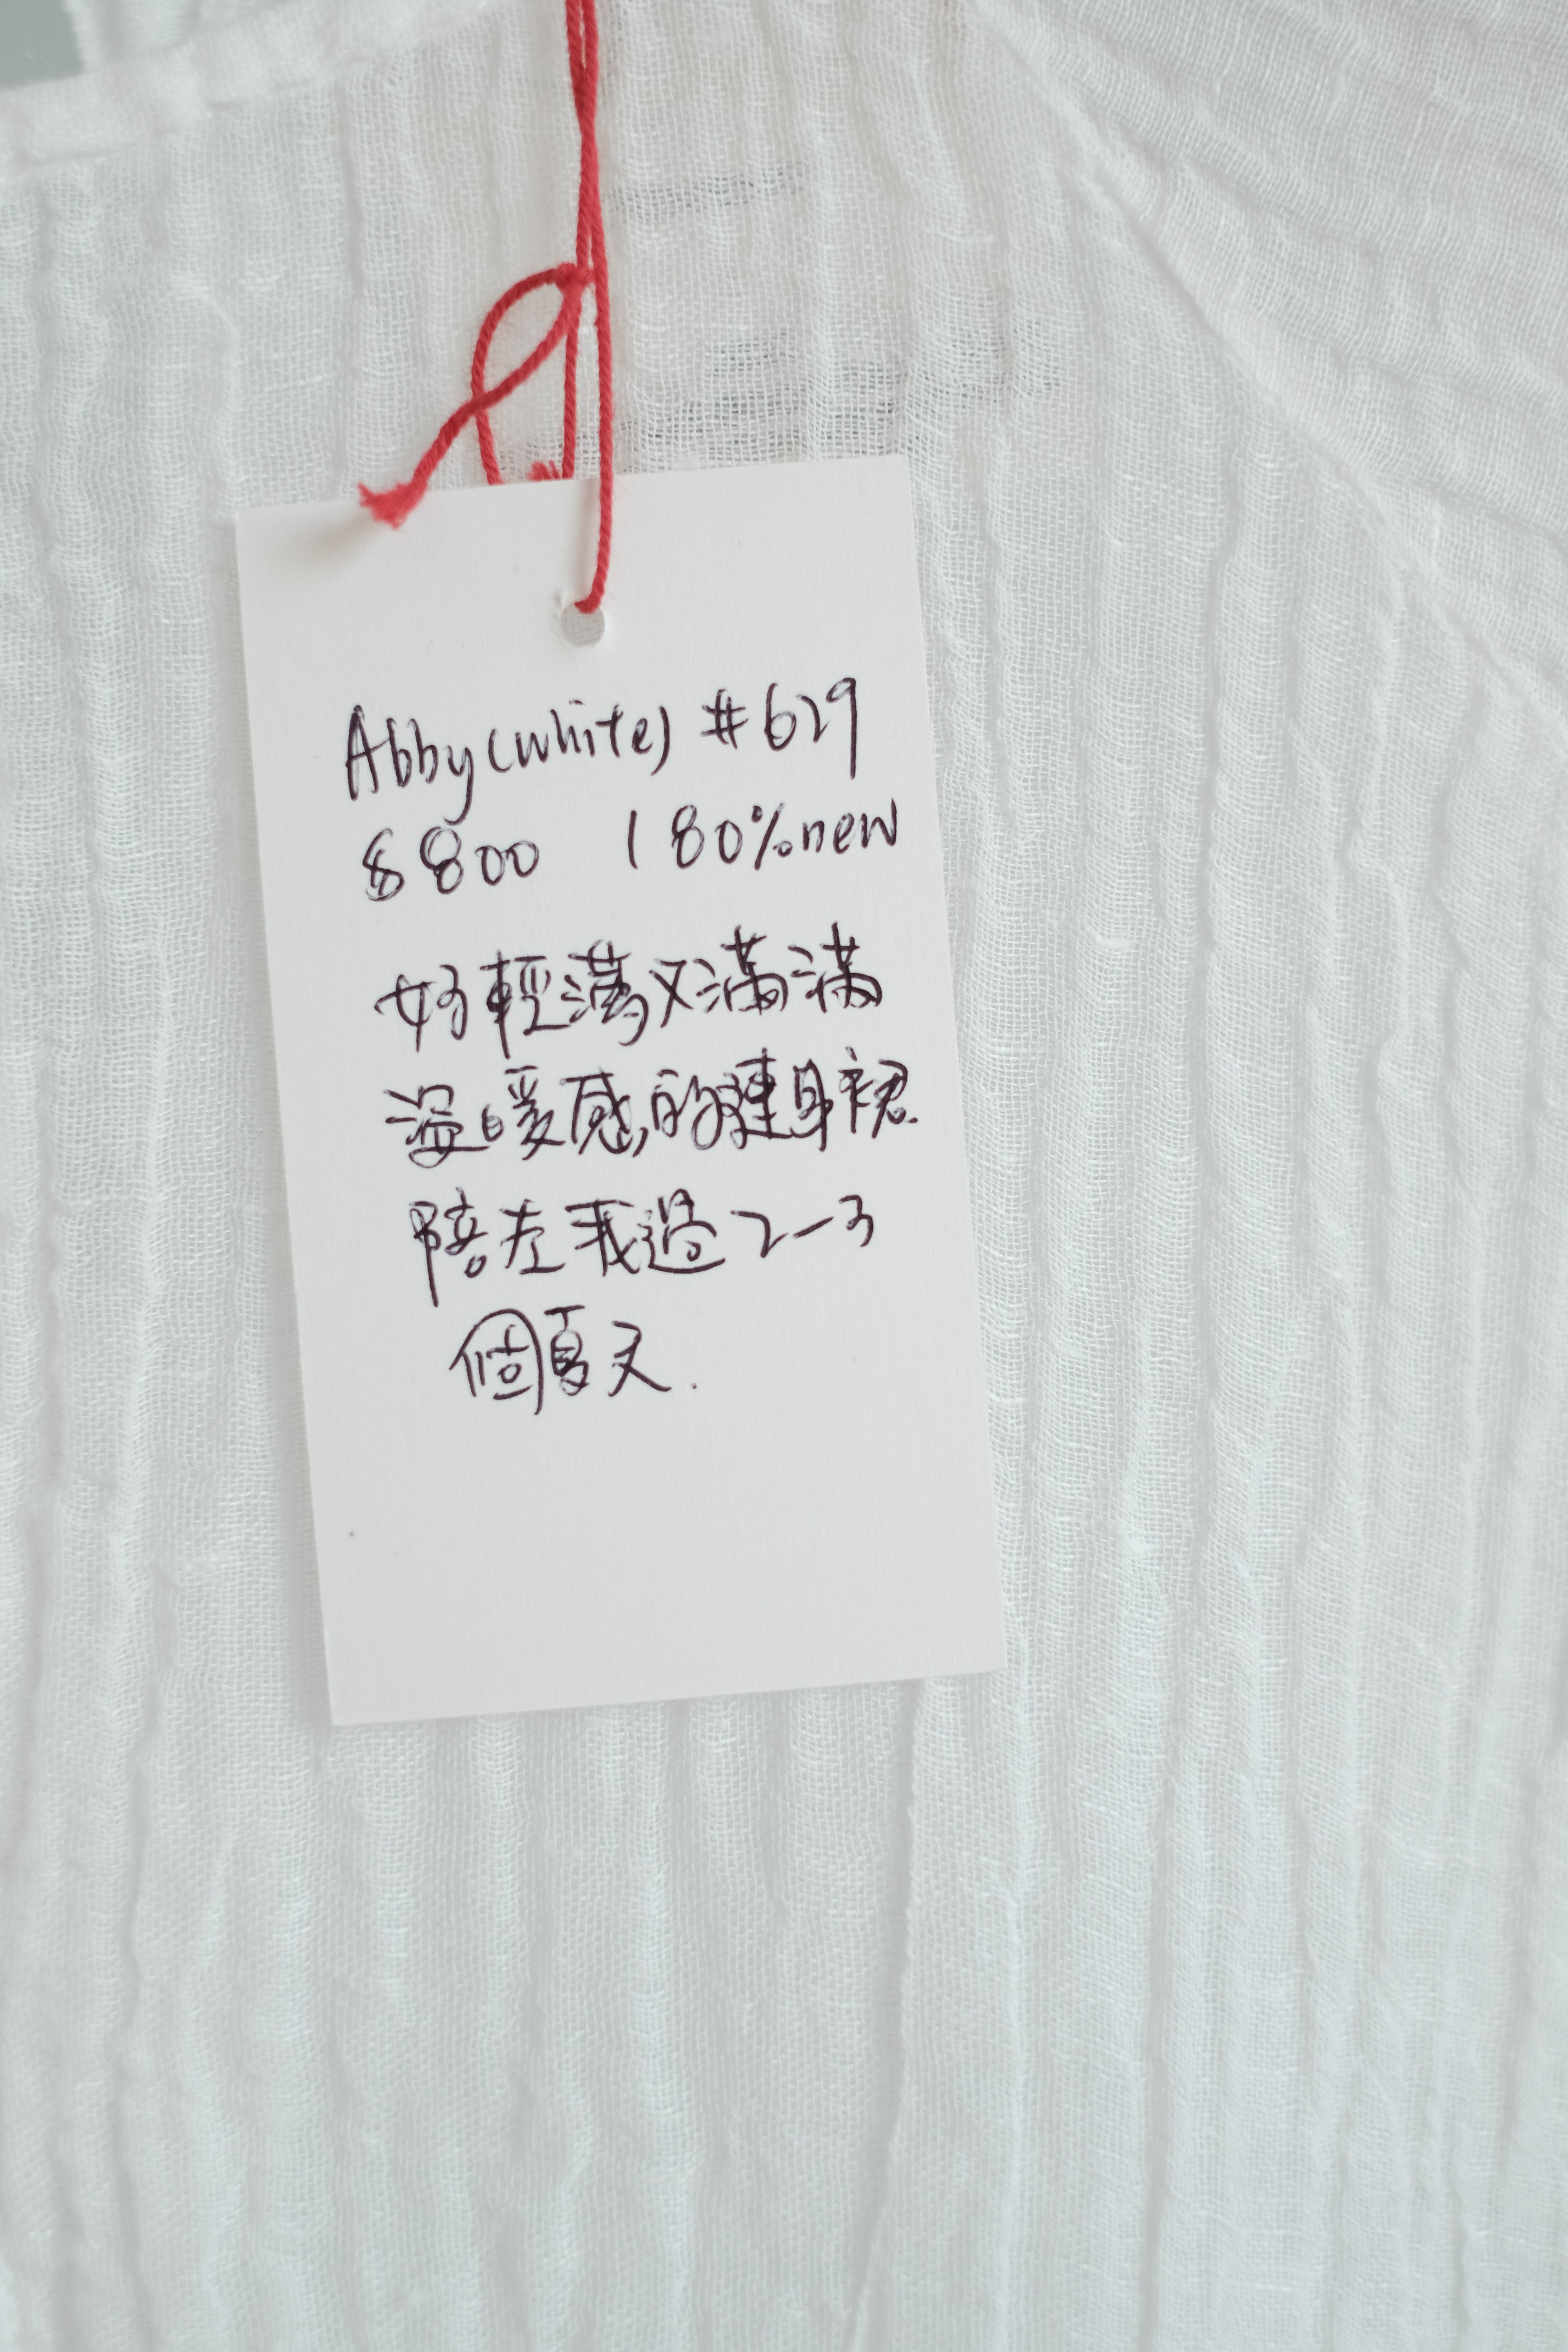 Abby (white) #629
$800 | 80% new
好輕薄又滿滿
溫暖感的連身裙.
陪左我過2-3
個夏天.